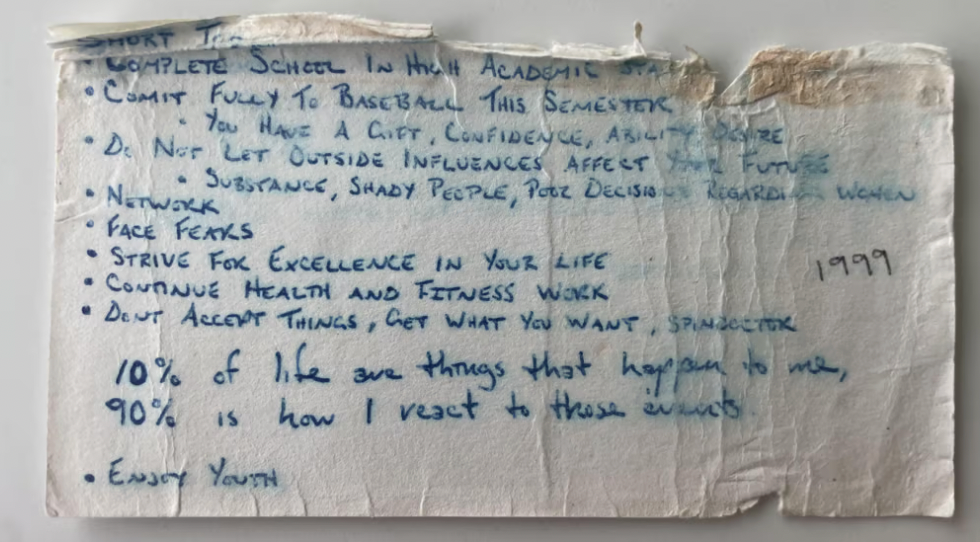 SHORT
• COMPLETE SCHOOL IN HIGH ACADEMIC
• COMIT FULLY TO BASEBALL THIS SEMESTER
• YOU HAVE A GIFT, CONFIDENCE, ABILITY DESIRE
• DO NOT LET OUTSIDE INFLUENCES AFFECT YOUR FUTURE
• SUBSTANCE, SHADY PEOPLE, POOR DECISIONS REGARDING WOMEN
• NETWORK
• FACE FEARS
• STRIVE FOR EXCELLENCE IN YOUR LIFE
1999
• CONTINUE HEALTH AND FITNESS WORK
• DONT ACCEPT THINGS, GET WHAT YOU WANT, SPINDOCTOR
10% of life are things that happen to me,
90% is how I react to those events
• ENJOY YOUTH